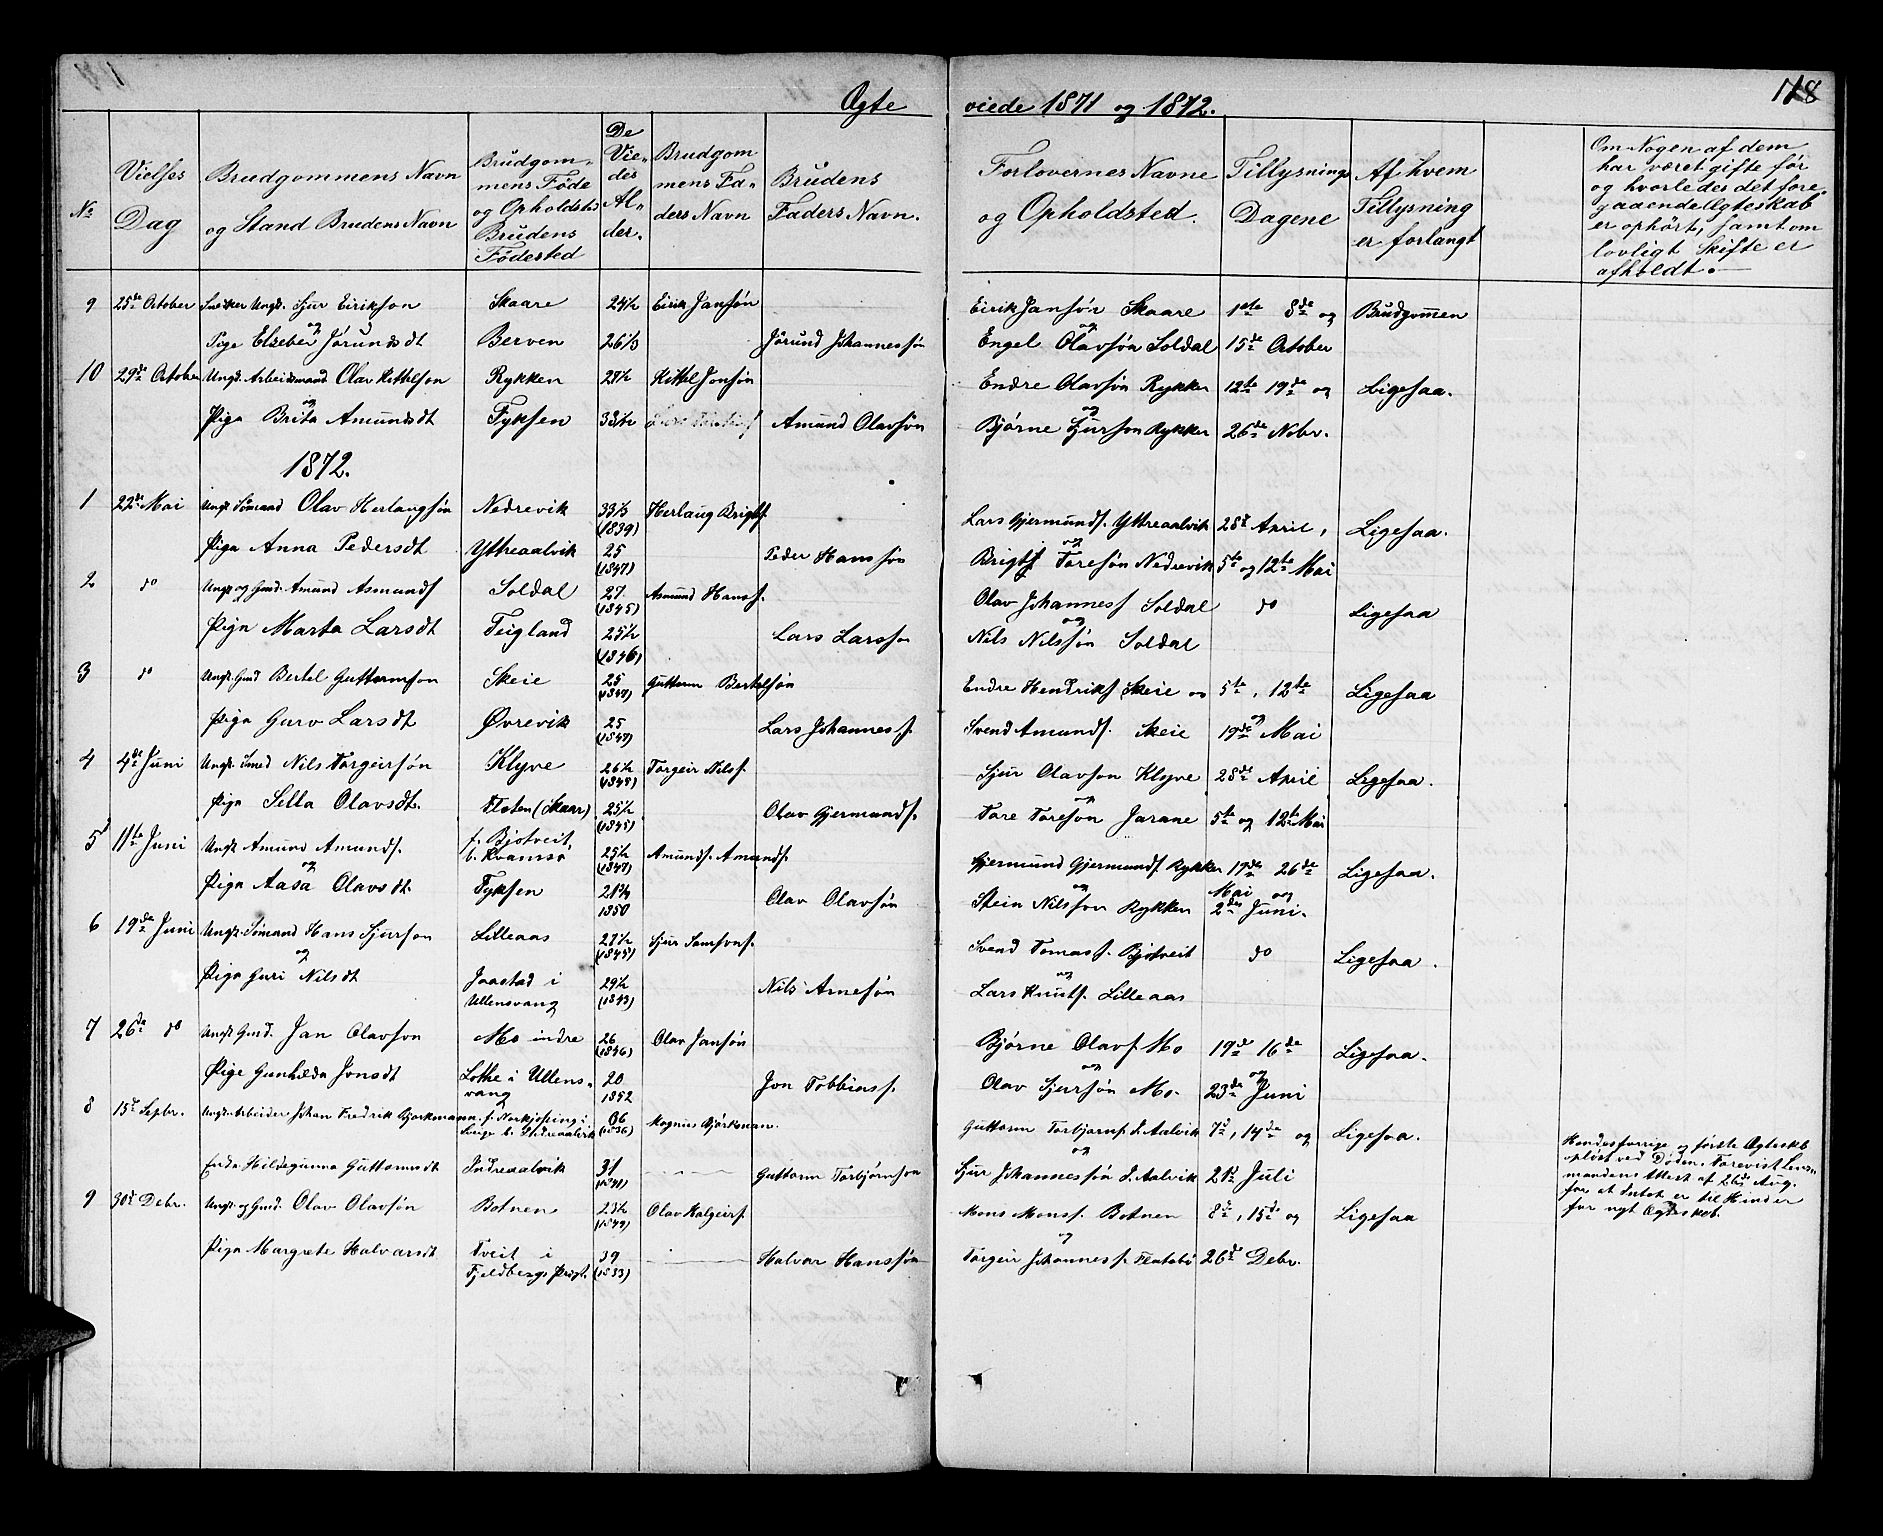 Ægte
viede 1871 og 1872.
118
No
Vielses Dag
Brudgommens Navn og Stand Brudens Navn
Brudgommens Føde og Opholdsted Brudens Fødested
De Viedes Alder.
Brudgommens Faders Navn
Brudens Faders Navn.
Forlovernes Navne og Opholdsted.
Tillysnings Dagene
Af hvem Tillysning er forlangt
Om Nogen af dem har været gifte før og hvorledes det foregaaende Ægteskab er ophørt, samt om lovligt Skifte er afholdt.
9 25de October Snekker Ungk. Sjur Eirikson Skaare 24½ Eirik Jansøn Eirik Jansøn Skaare 1ste 8de og Brudgommen
og
Pige Elseber Jørundsdt Berven 26⅓ Jørund Johannessøn Engel Olavsøn Soldal 15de October
10 29de October Ungk. Arbeidsmand Olav Kittelson Rykken 27½ Kittel Jonsøn Endre Olavsøn Rykken 12te 19de og Ligesaa.
og
Piga Brita Amundsdt Fyksen 33½ Amund Olavsøn Bjørne Sjurson Rykken 26de Nobr.
1872.
1 22de Mai Ungk. Sømand Olav Herlaugsøn Nedrevik 33⅓ (1839) Herlaug Brigts. Lars Gjermunds. Ytreaalvik 28de April, Ligesaa.
og
Piga Anna Pedersdt Ytreaalvik 25 (1847) Peder Hanssøn Brigt Toresøn Nedrevik 5te og 12te Mai
2 do Ungk. og Gmd. Amund Asmunds. Soldal 27 (1845) Asmund Hanss. Olav Johanness. Soldal do Ligesaa
og
Piga Marta Larsdt Teigland 25½ (1846) Lars Larsson Nils Nilssøn Soldal
3 do Ungk. Gmd Bertel Guttormson Skeie 25 (1847) Guttorm Bertelsøn Endre Hendriks. Skeie og 5te, 12te Ligesaa
og
Piga Guro Larsdt Øvrevik 25 (1847) Lars Johanness. Svend Amunds. Skeie 19de Mai
4 4de Juni Ungk. Smed Nils Torgeirsøn Klyve 26½ Torgeir Nils. Sjur Olavson Klyve 28de April Ligesaa.
og
Piga Silla Olavsdt. Floten (Skaar) 25½ Olav Gjermunds. Tore Toreson Jarane 5te og 12te Mai
5 11te Juni Ungk. Amund Amunds. f. Bjotveit, b. Kvamsø 25½ (1847) Amunds. Amunds. Gjermund Gjermunds. Rykken 19de 26de Ligesaa.
og
Piga Aasa Olavsdt. Fyksen 21¾ 1850 Olav Olavsøn Stein Nilsson Rykken Mai og 2den Juni.
6 19de Juni Ungk. Sømand Hans Sjurson Lilleaas 27½ (1845) Sjur Samsons. Svend Tomass. Bjotveit do Ligesaa.
og
Piga Guri Nilsdt Jaastad i Ullensvang 29½ (1843) Nils Arnesøn Lars Knuts. Lilleaas
7 26de do Ungk. Gmd. Jan Olavson Mo indre 26 (1846) Olav Jansøn Bjørne Olavs. Mo 19de 16de Ligesaa.
og
Pige Gunhilda Jonsdt Lothe i Ullensvang 20 1852 Jon Tobbias. Olav Sjursøn Mo. 23de Juni
8 15de Sepbr. Ungk. Arbeider Johan Fredrik Bjorkmann f. Norkjøping i Sverige b. Indreaalvik 36 (1836) Magnus Bjorkman. Guttorm Torbjorns. I. Aalvik 7de, 14de og Ligesaa.
og
Enke Hildegunna Guttormsdt Indreaalvik 31 (1841) Guttorm Torbjørnson Sjur Johannessøn I. Aalvik 21de Juli
Hendes forrige og første Ægteskb. opløst ved Døden. Forevist Lensmandens Attest af 26de Aug. for at Intet er til Hinder for nyt Ægteskab.
9 30de Debr. Ungk. og Gmd. Olav Olavsøn Botnen 23½ (1849) Olav Halgeirs. Mons Monss. Botnen 8de, 15de og Ligesaa
og
Piga Margrete Halvarsdt Tveit i Fjeldbergs Prgt. 39 (1833) Halvar Hanssøn Torgeir Johanness. Flatebø 26de Debr.